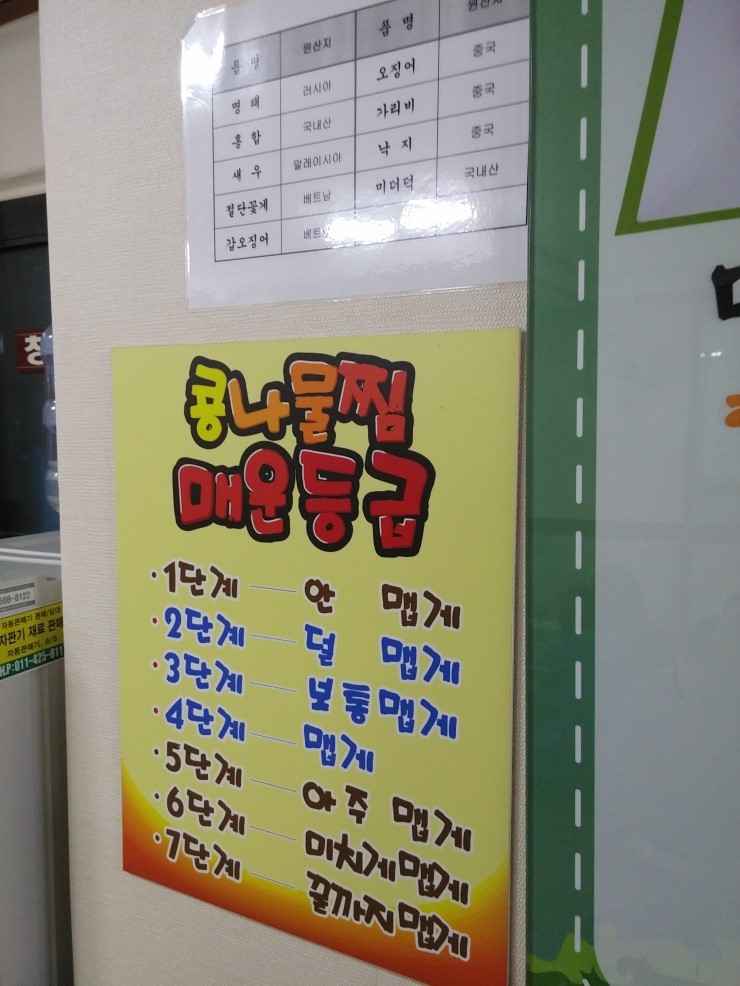 품 명 원산지 품 명 원산지
명 태 러시아 오징어 중국
홍 합 국내산 가리비 중국
새 우 말레이시아 낙 지 중국
절단꽃게 베트남 미더덕 국내산
갑오징어
콩나물찜
매운등급
·1단계 — 안 맵게
·2단계 — 덜 맵게
·3단계 — 보통맵게
·4단계 — 맵게
·5단계 — 아주 맵게
·6단계 — 미치게맵게
·7단계 — 끝까지맵게
자동판매기 판매/임대
자판기 재료 판매
자동판매기, A/S